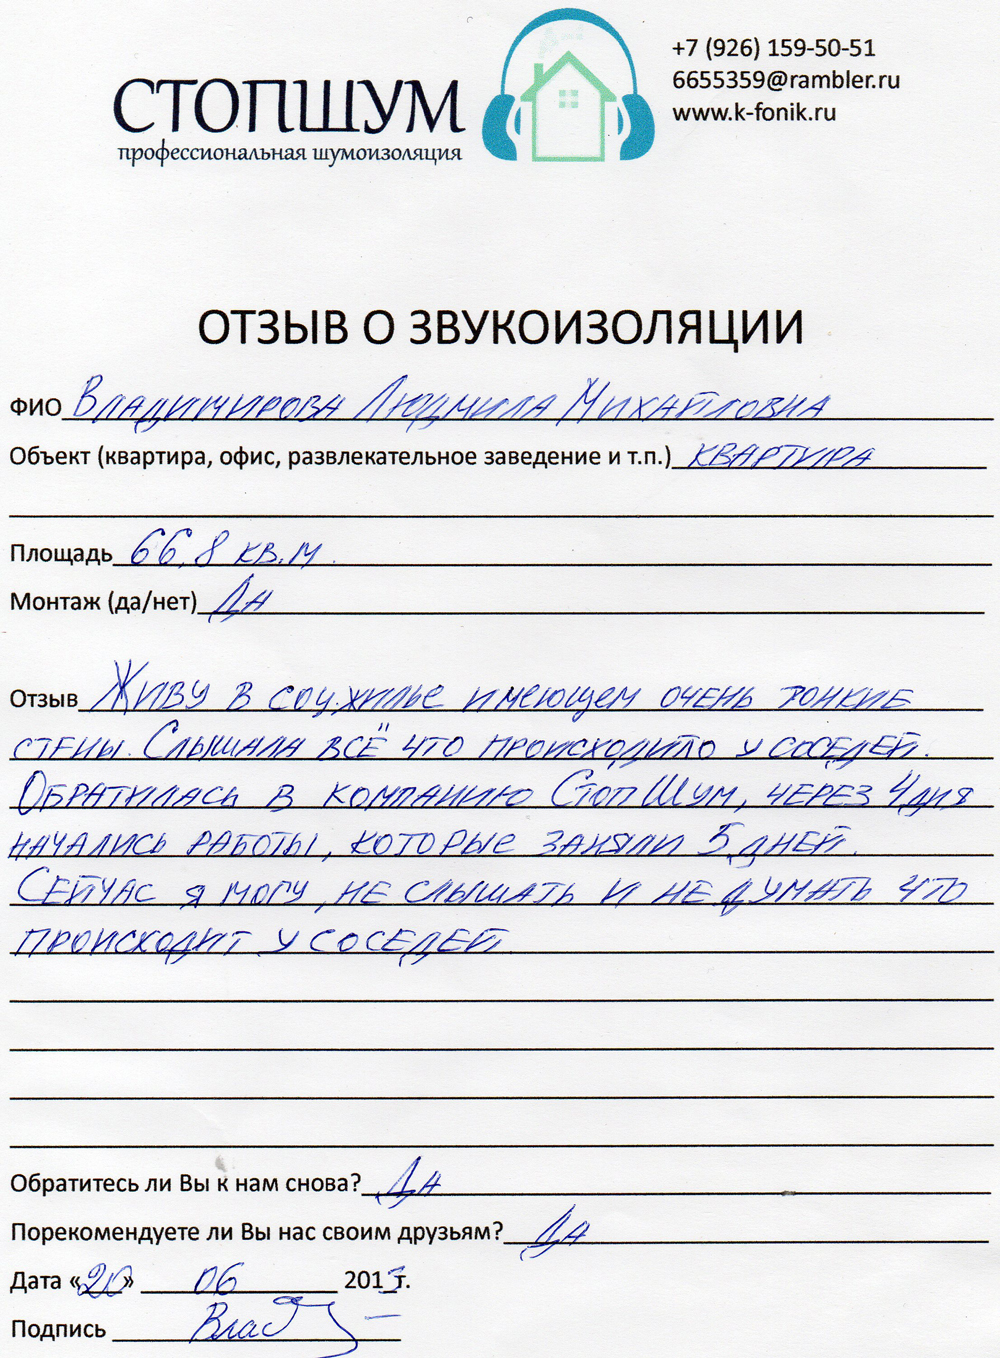 СТОПШУМ
профессиональная шумоизоляция
+7 (926) 159-50-51
6655359@rambler.ru
www.k-fonik.ru
ОТЗЫВ О ЗВУКОИЗОЛЯЦИИ
ФИО Владимирова Людмила Михайловна
Объект (квартира, офис, развлекательное заведение и т.п.) квартира
Площадь 66,8 кв.м.
Монтаж (да/нет) Да
Отзыв Живу в соц.жилье имеющем очень тонкие
стены. Слышала всё что происходило у соседей.
Обратилась в компанию СтопШум, через 4 дня
начались работы, которые заняли 5 дней.
Сейчас я могу не слышать и не думать что
происходит у соседей.
Обратитесь ли Вы к нам снова? Да
Порекомендуете ли Вы нас своим друзьям? Да
Дата «20» 06 2013г.
Подпись Влад